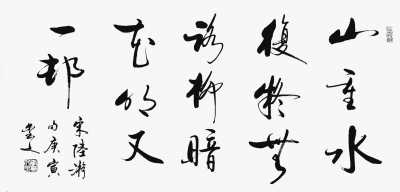 山重水
復疑無
路柳暗
花明又
一邨
宋陸游
句庚寅